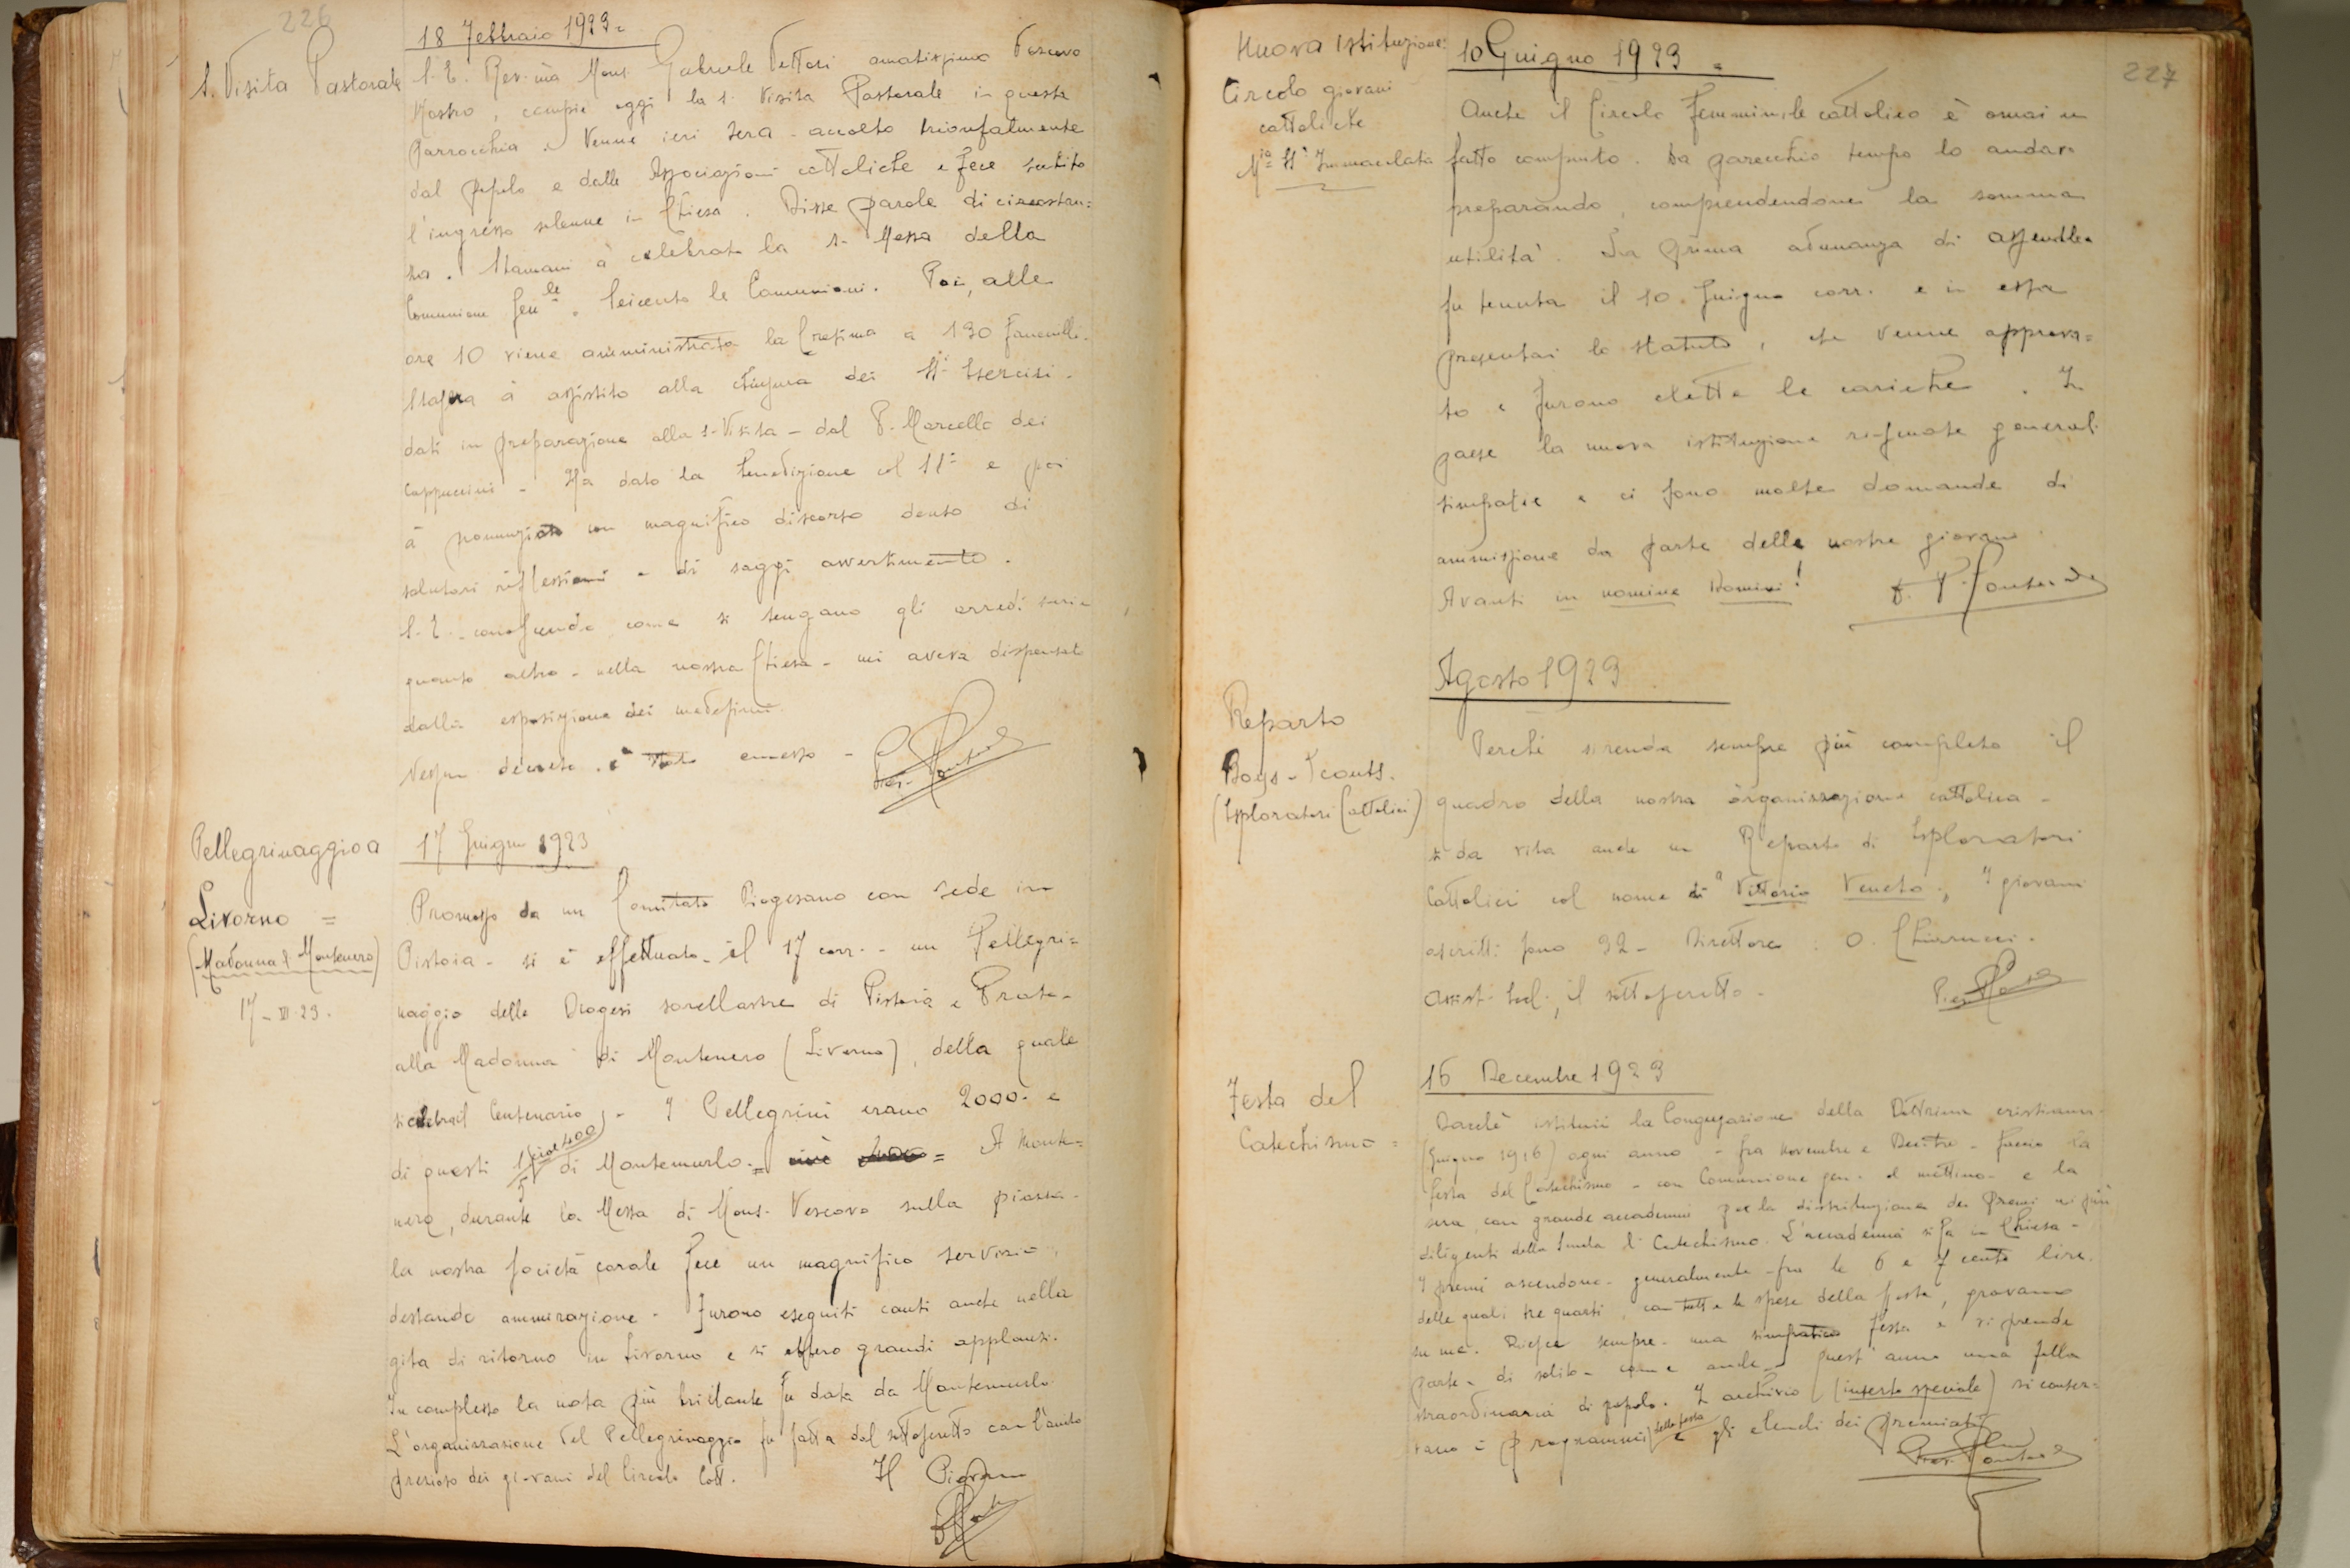 226
18 Febbraio 1923=
S. Visita Pastorale
S. E. Rev.ma Mons. Gabriele Vettori amatissimo Vescovo
Nostro, compie oggi la S. Visita Pastorale in questa
Parrocchia. Venne ieri sera - accolto trionfalmente
dal popolo e dalle Associazioni cattoliche e fece subito
l'ingresso solenne in Chiesa. Disse parole di circostan=
za. Stamani à celebrato la S. Messa della
Comunione Gen.le. Seicento le Comunioni. Poi, alle
ore 10 viene amministrata la Cresima a 130 fanciulli.
Stasera à assistito alla chiusura dei SS. Esercizi -
dati in preparazione alla S. Visita - dal P. Marcello dei
Cappuccini - Ha dato la Benedizione col SS. e poi
à pronunziato un magnifico discorso denso di
salutari riflessioni e di saggi avvertimenti.
S. E. conoscendo come si tengano gli arredi sacri e
quanto altro - nella nostra Chiesa - mi aveva dispensato
dalla esposizione dei medesimi.
Nessun decreto è stato emesso -
Pellegrinaggio a
Livorno =
(Madonna di Montenero)
17 - VI - 23.
17 Giugno 1923
Promosso da un Comitato Diogesano con sede in
Pistoia - si è effettuato - il 17 corr. - un Pellegri=
naggio delle Diogesi sorellastre di Pistoia e Prato -
alla Madonna di Montenero (Livorno), della quale
si celebra il Centenario - I Pellegrini erano 2000 - e
di questi 1/5 cioè 400 di Montemurlo. = cioè = A Monte=
nero, durante la Messa di Mons. Vescovo sulla piazza -
la nostra Società corale fece un magnifico servizio,
destando ammirazione - Furono eseguiti canti anche nella
gita di ritorno in Livorno e si ebbero grandi applausi.
In complesso la nota più brillante fu data da Montemurlo
L'organizzazione del Pellegrinaggio fu fatta dal sottoscritto con l'aiuto
prezioso dei giovani del Circolo Catt.
Il Pievano
227
Nuova Istituzione:
Circolo giovani
cattoliche
M.ia SS. Immacolata
10 Giugno 1923 =
Anche il Circolo femminile cattolico è omai un
fatto compiuto. Da parecchio tempo lo andavo
preparando, comprendendone la somma
utilità. La prima adunanza di assemblea
fu tenuta il 10 Giugno corr. e in essa
presentai lo statuto, che venne approva=
to e furono elette le cariche. In
paese la nuova istituzione riscuote general.
simpatie e ci sono molte domande di
ammissione da parte delle nostre giovani
Avanti in nomine Domini!
Agosto 1923
Reparto
Boys-Scouts.
(Esploratori Cattolici)
Perchè si renda sempre più completo il
quadro della nostra organizzazione cattolica -
si dà vita anche un Reparto di Esploratori
Cattolici col nome di "Vittorio Veneto". I giovani
ascritti sono 32 - Direttore: O. Chiarucci.
assist. Eccl., il sottoscritto -
16 Decembre 1923
Festa del
Catechismo =
Dacchè istituii la Congregazione della Dottrina cristiana -
(Giugno 1916) ogni anno - fra Novembre e Decembre - faccio la
festa del Catechismo - con Comunione gen. al mattino - e la
sera, con grande accademia per la distribuzione dei Premi ai più
diligenti della Scuola di Catechismo. L'accademia si fa in Chiesa -
I premi ascendono - generalmente - fra le 6 e 7 cento lire.
delle quali tre quarti, con tutte le spese della festa, gravano
su me. Riesce sempre - una simpatica festa e vi prende
parte - di solito - come anche quest'anno una folla
straordinaria di popolo. In archivio (inserto speciale) si conser=
vano i programmi della festa e gli elenchi dei premiati